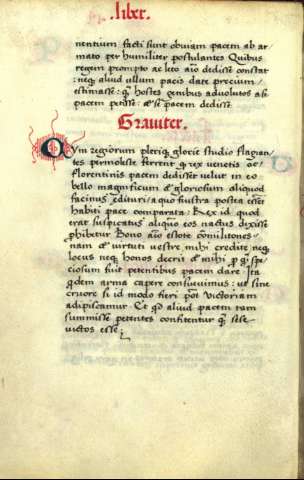 .liber.
nentium facti sunt obviam pacem ab ar
mato per humiliter postulantes Quibus
regem prompto ac leto aĩo dedisse constat
: neq; aliud ullum pacis date precium /
estimasse : q̃ hostes genibus advolutos a se
pacem petisse . & se pacem dedisse
Graviter.
Cvm regiorum pleriq; glorie studio flagran-
tes permoleste ferrent q rex venetis ac
florentinis pacem dedisset velut in eo
bello magnificum & gloriosum aliquod
facimus edituri / a quo frustra postea essent
habiti pace comparata : Rex id quod
erat suspicatus aliquo eos nactus dixisse
phibetur Bono aĩo estote cõmilitones /
nam & virtuti vestre mihi credite neq;
locus neq; honos deerit & mihi
ciosum fuit petentibus pacem dare . Ita
q̃dem arma capere consuevimus : ut sine
cruore si id modo fieri põt victoriam
adipiscamur . Et q̃d aliud pacem tam
summisse petentes confitentur q̃ sese
victos esse .